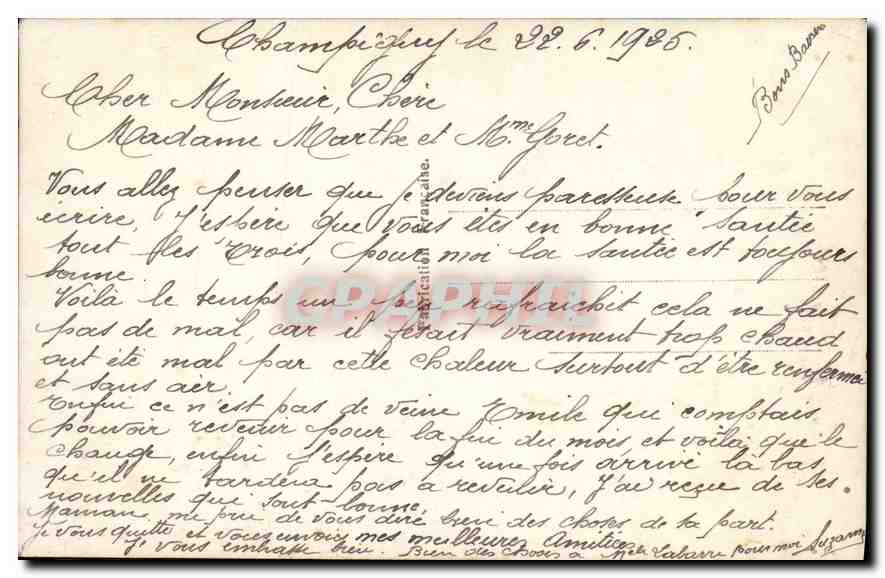 Champigny le 22.6.1925.
Bons Baisers
Cher Monsieur, Chère
Madame Marthe et Mme Goret.
Vous allez penser que je deviens paresseuse pour vous
écrire, J'espère que vous êtes en bonne santée
tout les trois, pour moi la santée est toujours
bonne
Voilà le temps un peu rafraichit cela ne fait
pas de mal, car il fesait vraiment trop chaud
ont été mal par cette chaleur surtout d'être renfermé
et sans aer
Enfin ce n'est pas de veine Emile qui comptais
pouvoir revenir pour la fin du mois et voilà que le
change, enfin j'espère qu'une fois arrivé là bas
qu'il ne tardera pas a revenir, J'ai reçue de ses
nouvelles qui sont bonne.
Maman me prie de vous dire bien des choses de sa part.
Je vous quitte et vous envoie mes meilleures Amitiés
J. vous embrasse bien. Bien des choses à Melle Labarre pour moi Suzanne
Fabrication Française.
CPAPHIL